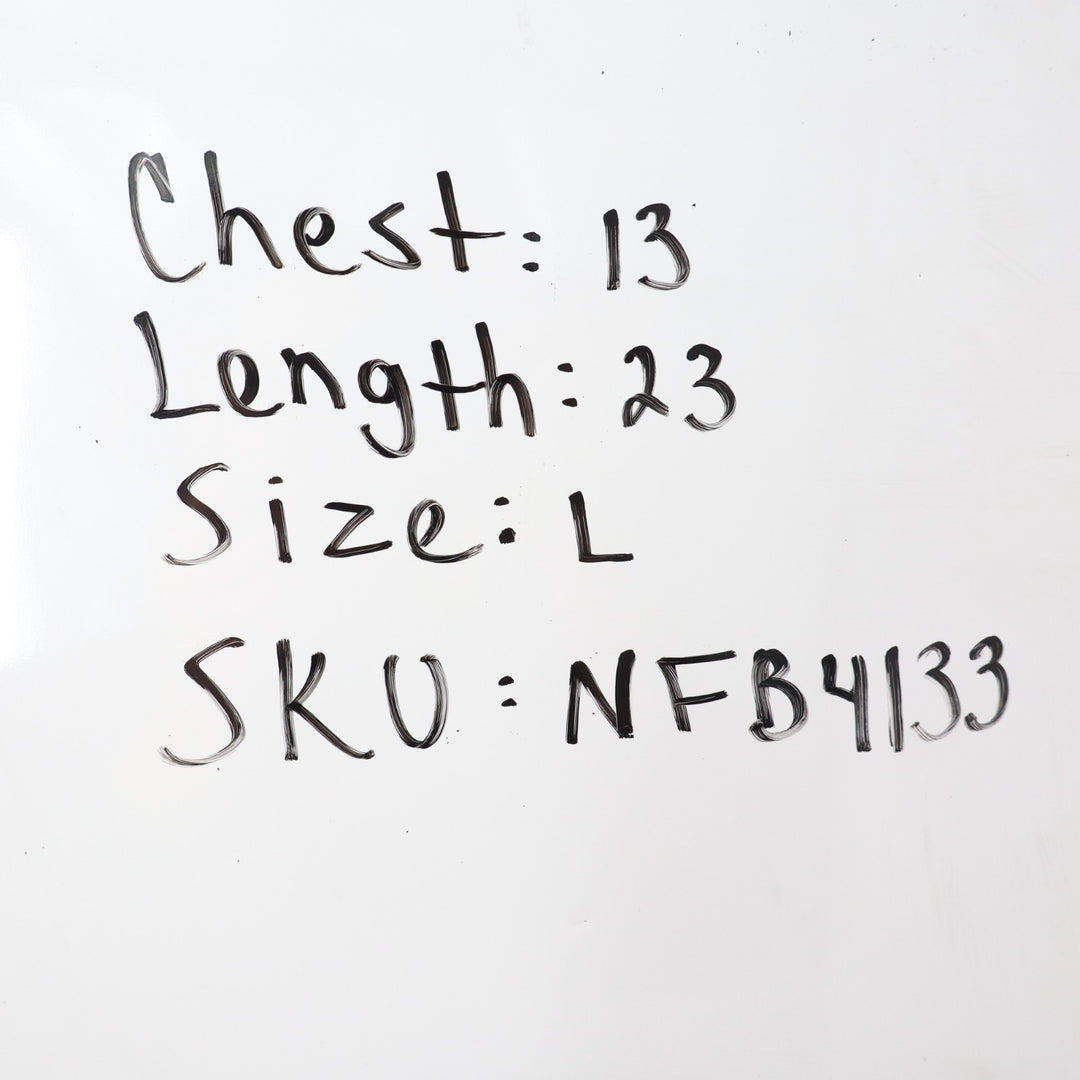 Chest: 13
Length: 23
Size: L
SKU: NFB4133